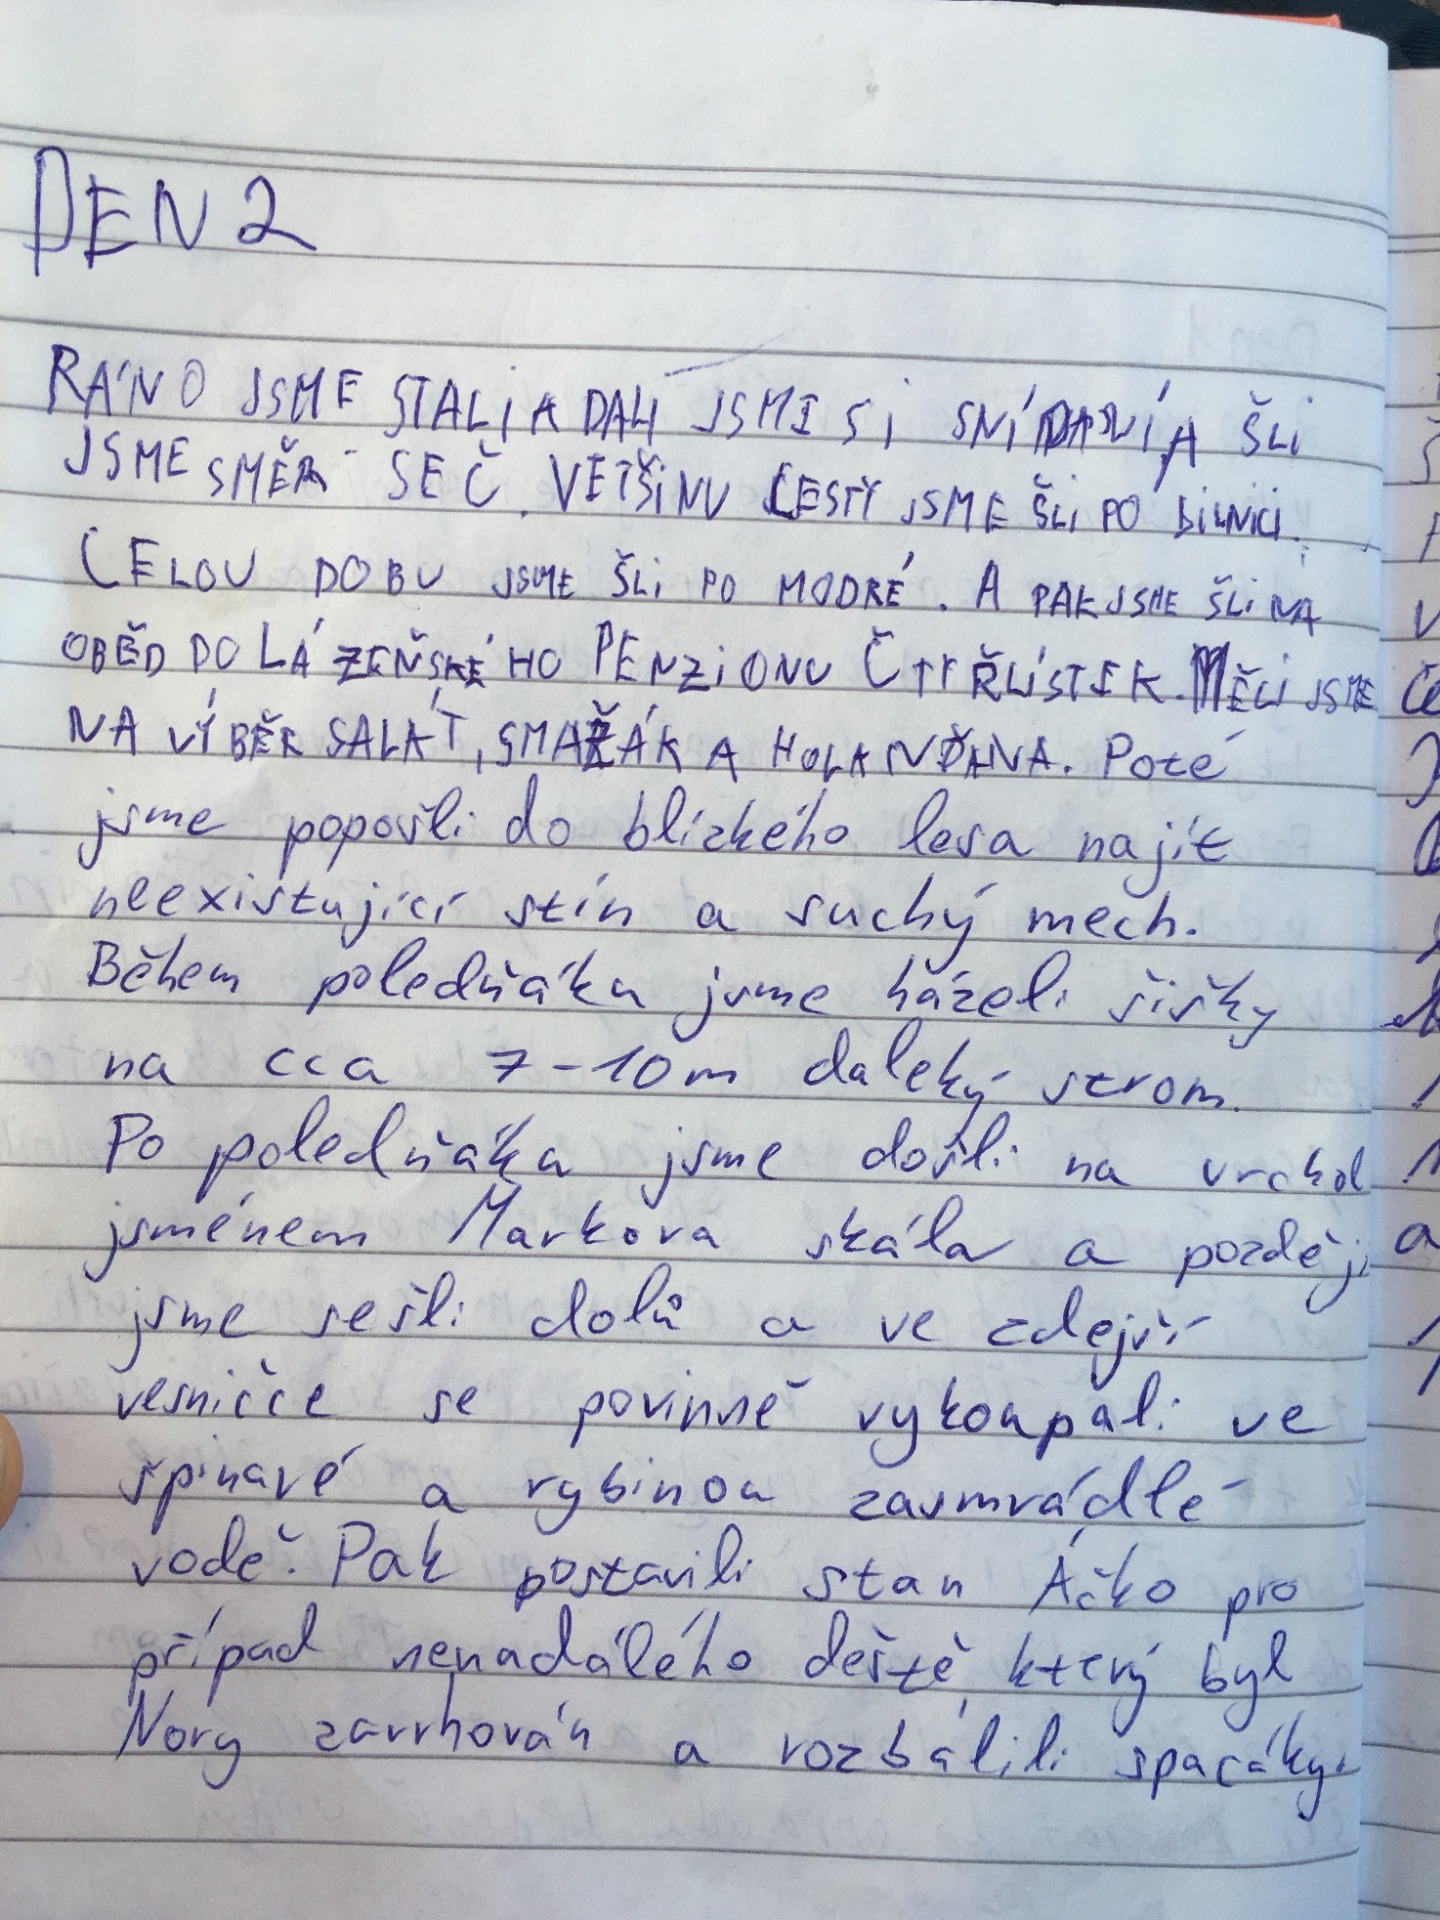 DEN 2
RÁNO JSME STALI A DALI JSME SI SNÍDANÍ A ŠLI
JSME SMĚR SEČ. VETŠINU CESTY JSME ŠLI PO SILNICI.
CELOU DOBU JSME ŠLI PO MODRÉ. A PAK JSME ŠLI NA
OBĚD DO LÁZEŇSKÉHO PENZIONU ČTYŘLÍSTEK. MĚLI JSME
NA VÝBĚR SALÁT, SMAŽÁK A HOLANĎANA. Poté
jsme popošli do blízkého lesa najít
neexistující stín a suchý mech.
Během poledňáku jsme házeli šišky
na cca 7-10m daleký strom.
Po poledňáku jsme došli na vrchol
jsménem Markova skála a později
jsme sešli dolů a ve zdejší
vesničce se povinně vykoupali ve
špinavé a rybinou zasmrádlé
vodě. Pak postavili stan Áčko pro
případ nenadálého deště, který byl
Nory zavrhován a rozbálili spacáky.